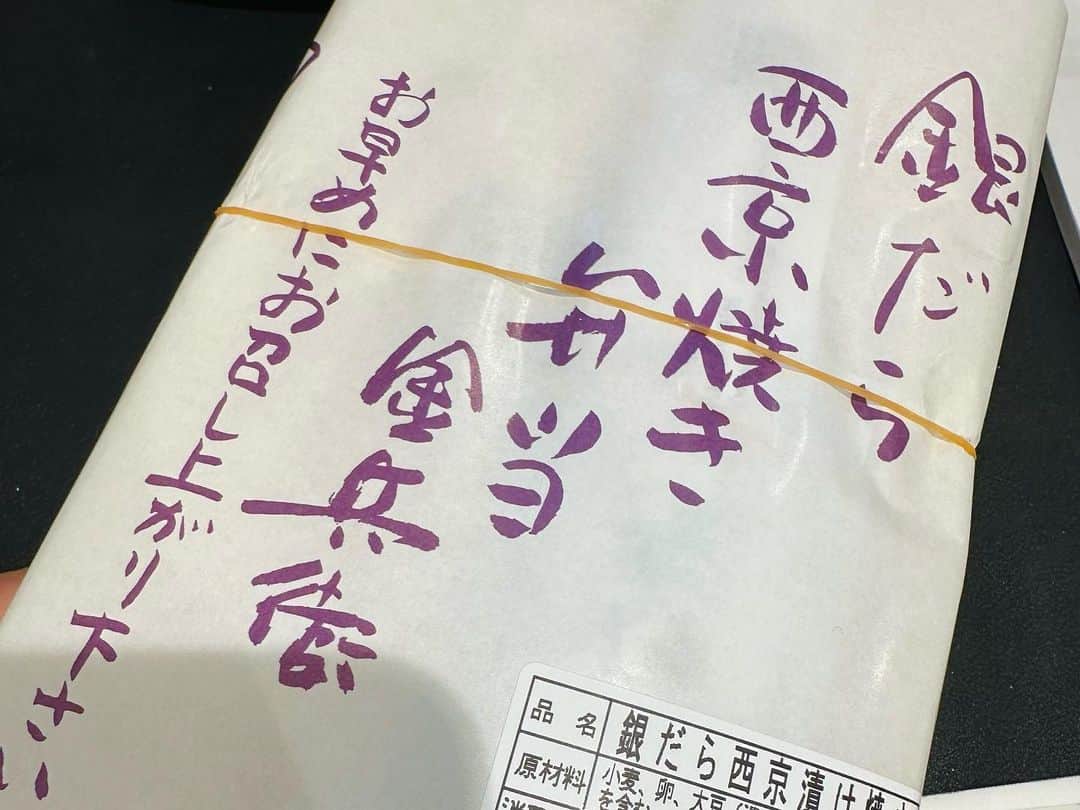 銀だら
西京焼き
弁当
金兵衛
お早めにお召し上がり下さい
品名
銀だら西京漬け焼
原材料
小麦、卵、大豆
を含む